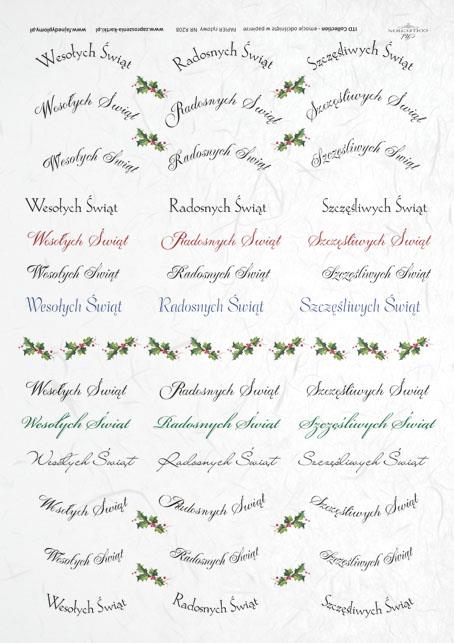 ITD Collection - emocje odciśnięte w papierze PAPIER ryżowy NR R208 www.zaproszenia-kartki.pl www.fajnepodyed.pl
ITD COLLECTION
Wesołych Świąt Radosnych Świąt Szczęśliwych Świąt
Wesołych Świąt Radosnych Świąt Szczęśliwych Świąt
Wesołych Świąt Radosnych Świąt Szczęśliwych Świąt
Wesołych Świąt Radosnych Świąt Szczęśliwych Świąt
Wesołych Świąt Radosnych Świąt Szczęśliwych Świąt
Wesołych Świąt Radosnych Świąt Szczęśliwych Świąt
Wesołych Świąt Radosnych Świąt Szczęśliwych Świąt
Wesołych Świąt Radosnych Świąt Szczęśliwych Świąt
Wesołych Świąt Radosnych Świąt Szczęśliwych Świąt
Wesołych Świąt Radosnych Świąt Szczęśliwych Świąt
Wesołych Świąt Radosnych Świąt Szczęśliwych Świąt
Wesołych Świąt Radosnych Świąt Szczęśliwych Świąt
Wesołych Świąt Radosnych Świąt Szczęśliwych Świąt